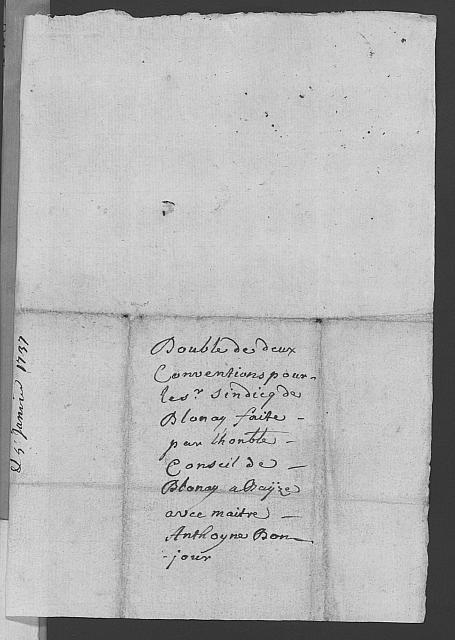 Double de deux
Conventions pour
le sr. Sindicq de
Blonay faite
par lhonble
Conseil de
Blonay a
avec maitre
Anthoyne Bon
jour
5 Janvier 1737